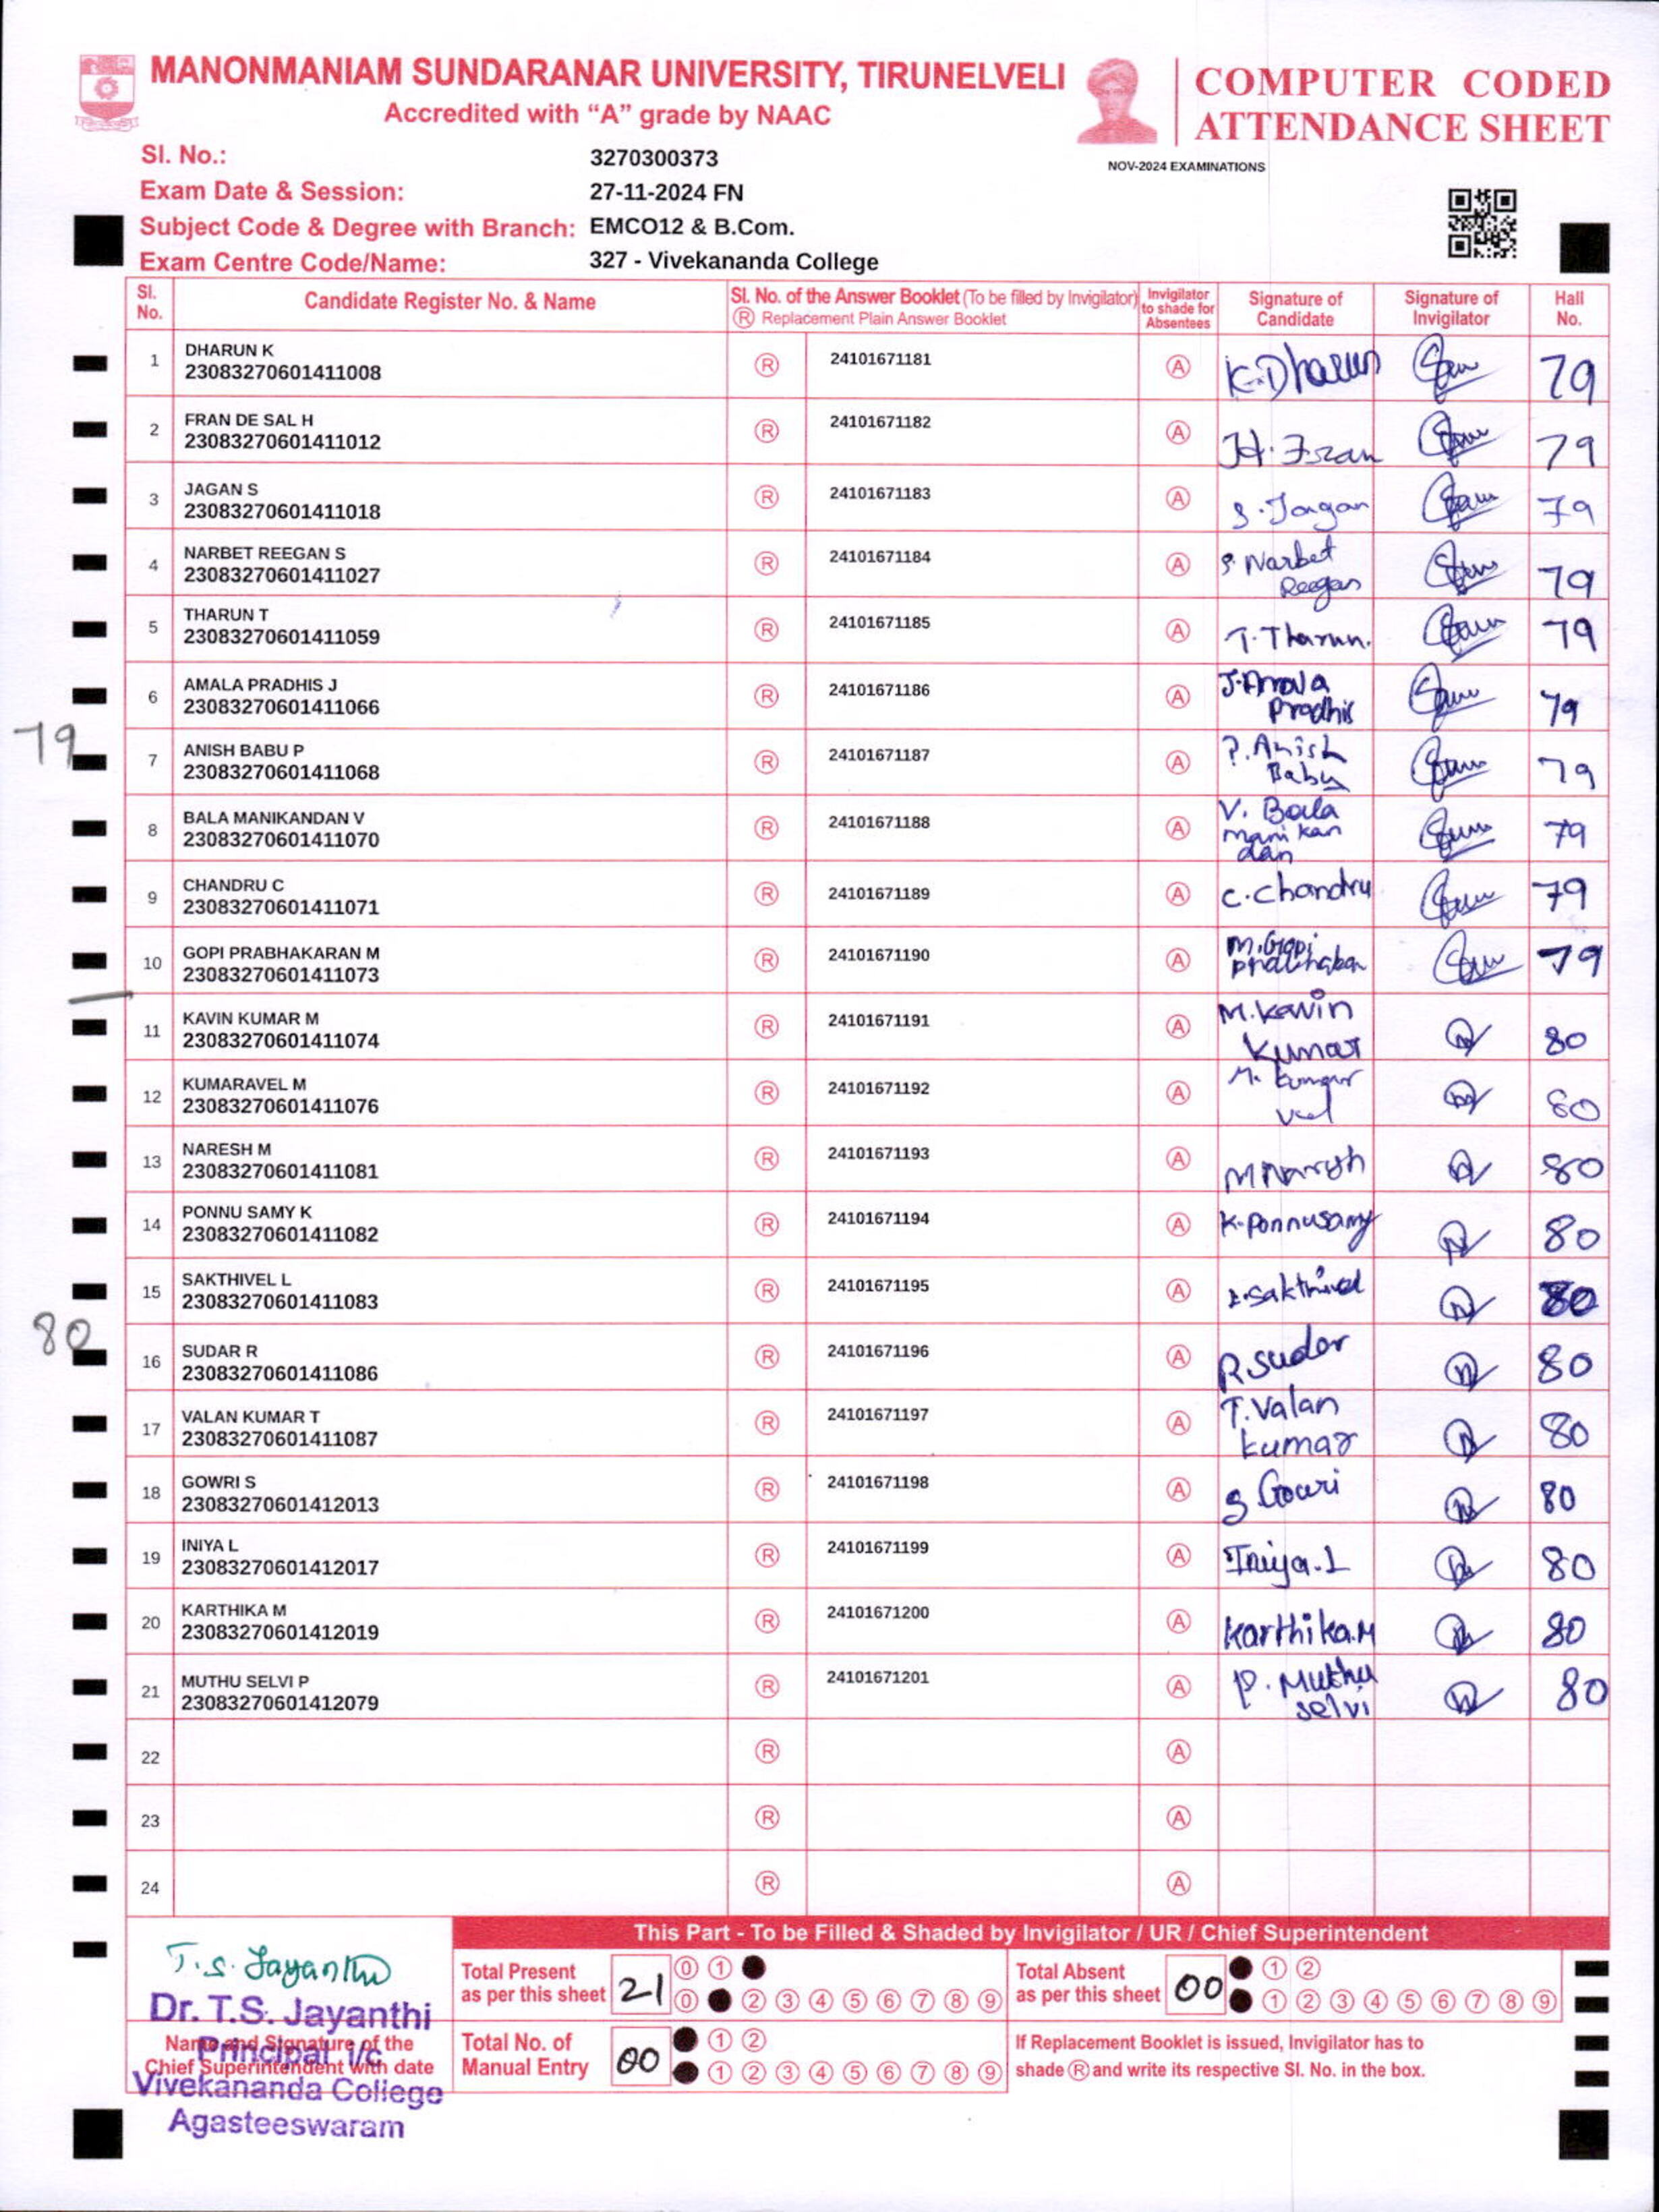 MANONMANIAM SUNDARANAR UNIVERSITY, TIRUNELVELI
Accredited with “A” grade by NAAC
COMPUTER CODED
ATTENDANCE SHEET
NOV-2024 EXAMINATIONS
Sl. No.: 3270300373
Exam Date & Session: 27-11-2024 FN
Subject Code & Degree with Branch: EMCO12 & B.Com.
Exam Centre Code/Name: 327 - Vivekananda College
Sl. No. Candidate Register No. & Name Sl. No. of the Answer Booklet (To be filled by Invigilator) Ⓡ Replacement Plain Answer Booklet Invigilator to shade for Absentees Signature of Candidate Signature of Invigilator Hall No.
1 DHARUN K 23083270601411008 Ⓡ 24101671181 Ⓐ K.Dharun 79
2 FRAN DE SAL H 23083270601411012 Ⓡ 24101671182 Ⓐ H.Fran 79
3 JAGAN S 23083270601411018 Ⓡ 24101671183 Ⓐ S.Jagan 79
4 NARBET REEGAN S 23083270601411027 Ⓡ 24101671184 Ⓐ S.Narbet Reegan 79
5 THARUN T 23083270601411059 Ⓡ 24101671185 Ⓐ T.Tharun. 79
6 AMALA PRADHIS J 23083270601411066 Ⓡ 24101671186 Ⓐ J.Amala Pradhis 79
79
7 ANISH BABU P 23083270601411068 Ⓡ 24101671187 Ⓐ P.Anish Babu 79
8 BALA MANIKANDAN V 23083270601411070 Ⓡ 24101671188 Ⓐ V. Bala mani kan dan 79
9 CHANDRU C 23083270601411071 Ⓡ 24101671189 Ⓐ C.Chandru 79
10 GOPI PRABHAKARAN M 23083270601411073 Ⓡ 24101671190 Ⓐ M.Gopi 79
11 KAVIN KUMAR M 23083270601411074 Ⓡ 24101671191 Ⓐ M.Kavin Kumar 80
12 KUMARAVEL M 23083270601411076 Ⓡ 24101671192 Ⓐ M. Kumar vel 80
13 NARESH M 23083270601411081 Ⓡ 24101671193 Ⓐ M Naresh 80
14 PONNU SAMY K 23083270601411082 Ⓡ 24101671194 Ⓐ K.Ponnusamy 80
15 SAKTHIVEL L 23083270601411083 Ⓡ 24101671195 Ⓐ L.Sakthivel 80
80
16 SUDAR R 23083270601411086 Ⓡ 24101671196 Ⓐ R.Sudar 80
17 VALAN KUMAR T 23083270601411087 Ⓡ 24101671197 Ⓐ T.Valan kumar 80
18 GOWRI S 23083270601412013 Ⓡ 24101671198 Ⓐ S Gowri 80
19 INIYA L 23083270601412017 Ⓡ 24101671199 Ⓐ Iniya.L 80
20 KARTHIKA M 23083270601412019 Ⓡ 24101671200 Ⓐ Karthika.M 80
21 MUTHU SELVI P 23083270601412079 Ⓡ 24101671201 Ⓐ P. Muthu selvi 80
22 Ⓡ Ⓐ
23 Ⓡ Ⓐ
24 Ⓡ Ⓐ
This Part - To be Filled & Shaded by Invigilator / UR / Chief Superintendent
T.S. Jayanthi
Dr. T.S. Jayanthi
Name and Signature of the
Principal I/c
Chief Superintendent with date
Vivekananda College
Agasteeswaram
Total Present as per this sheet 21
0 1
0 2 3 4 5 6 7 8 9
Total Absent as per this sheet 00
1 2
1 2 3 4 5 6 7 8 9
Total No. of Manual Entry 00
1 2
1 2 3 4 5 6 7 8 9
If Replacement Booklet is issued, Invigilator has to
shade Ⓡ and write its respective Sl. No. in the box.